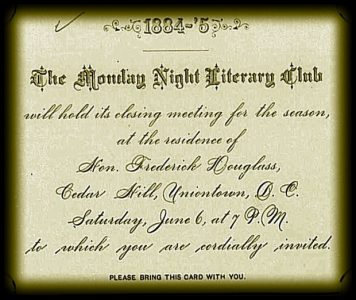 1884-'5
The Monday Night Literary Club
will hold its closing meeting for the season,
at the residence of
Hon. Frederick Douglass,
Cedar Hill, Uniontown, D. C.
Saturday, June 6, at 7 P.M.
to which you are cordially invited.
PLEASE BRING THIS CARD WITH YOU.